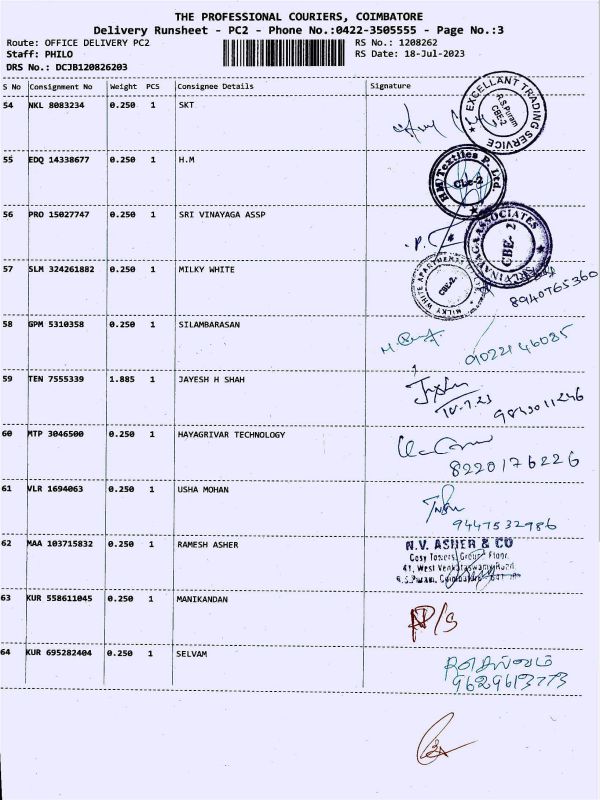 THE PROFESSIONAL COURIERS, COIMBATORE
Delivery Runsheet - PC2 - Phone No.:0422-3505555 - Page No.:3
Route: OFFICE DELIVERY PC2
RS No.: 1208262
Staff: PHILO
RS Date: 18-Jul-2023
DRS No.: DCJB120826203
S No Consignment No Weight PCS Consignee Details Signature
54 NKL 8083234 0.250 1 SKT
EXCELLANT TRADING SERVICE
R.S.Puram
CBE-2
55 EDQ 14338677 0.250 1 H.M
H.M Textiles P. Ltd.
Cbe-2
56 PRO 15027747 0.250 1 SRI VINAYAGA ASSP
SRI VINAYAGA ASSOCIATES
CBE- 2
57 SLM 324261882 0.250 1 MILKY WHITE
MILKY WHITE
CBE-2.
8940765360
58 GPM 5310358 0.250 1 SILAMBARASAN
59 TEN 7555339 1.885 1 JAYESH H SHAH
9843011246
60 MTP 3046500 0.250 1 HAYAGRIVAR TECHNOLOGY
8220176226
61 VLR 1694063 0.250 1 USHA MOHAN
9447532986
62 MAA 103715832 0.250 1 RAMESH ASHER
N.V. ASHER & CO
Cosy Towers, Group Floor,
41, West Venkataswamy Road
R.S.Puram, Coimbatore
63 KUR 558611045 0.250 1 MANIKANDAN
64 KUR 695282404 0.250 1 SELVAM
9629613773